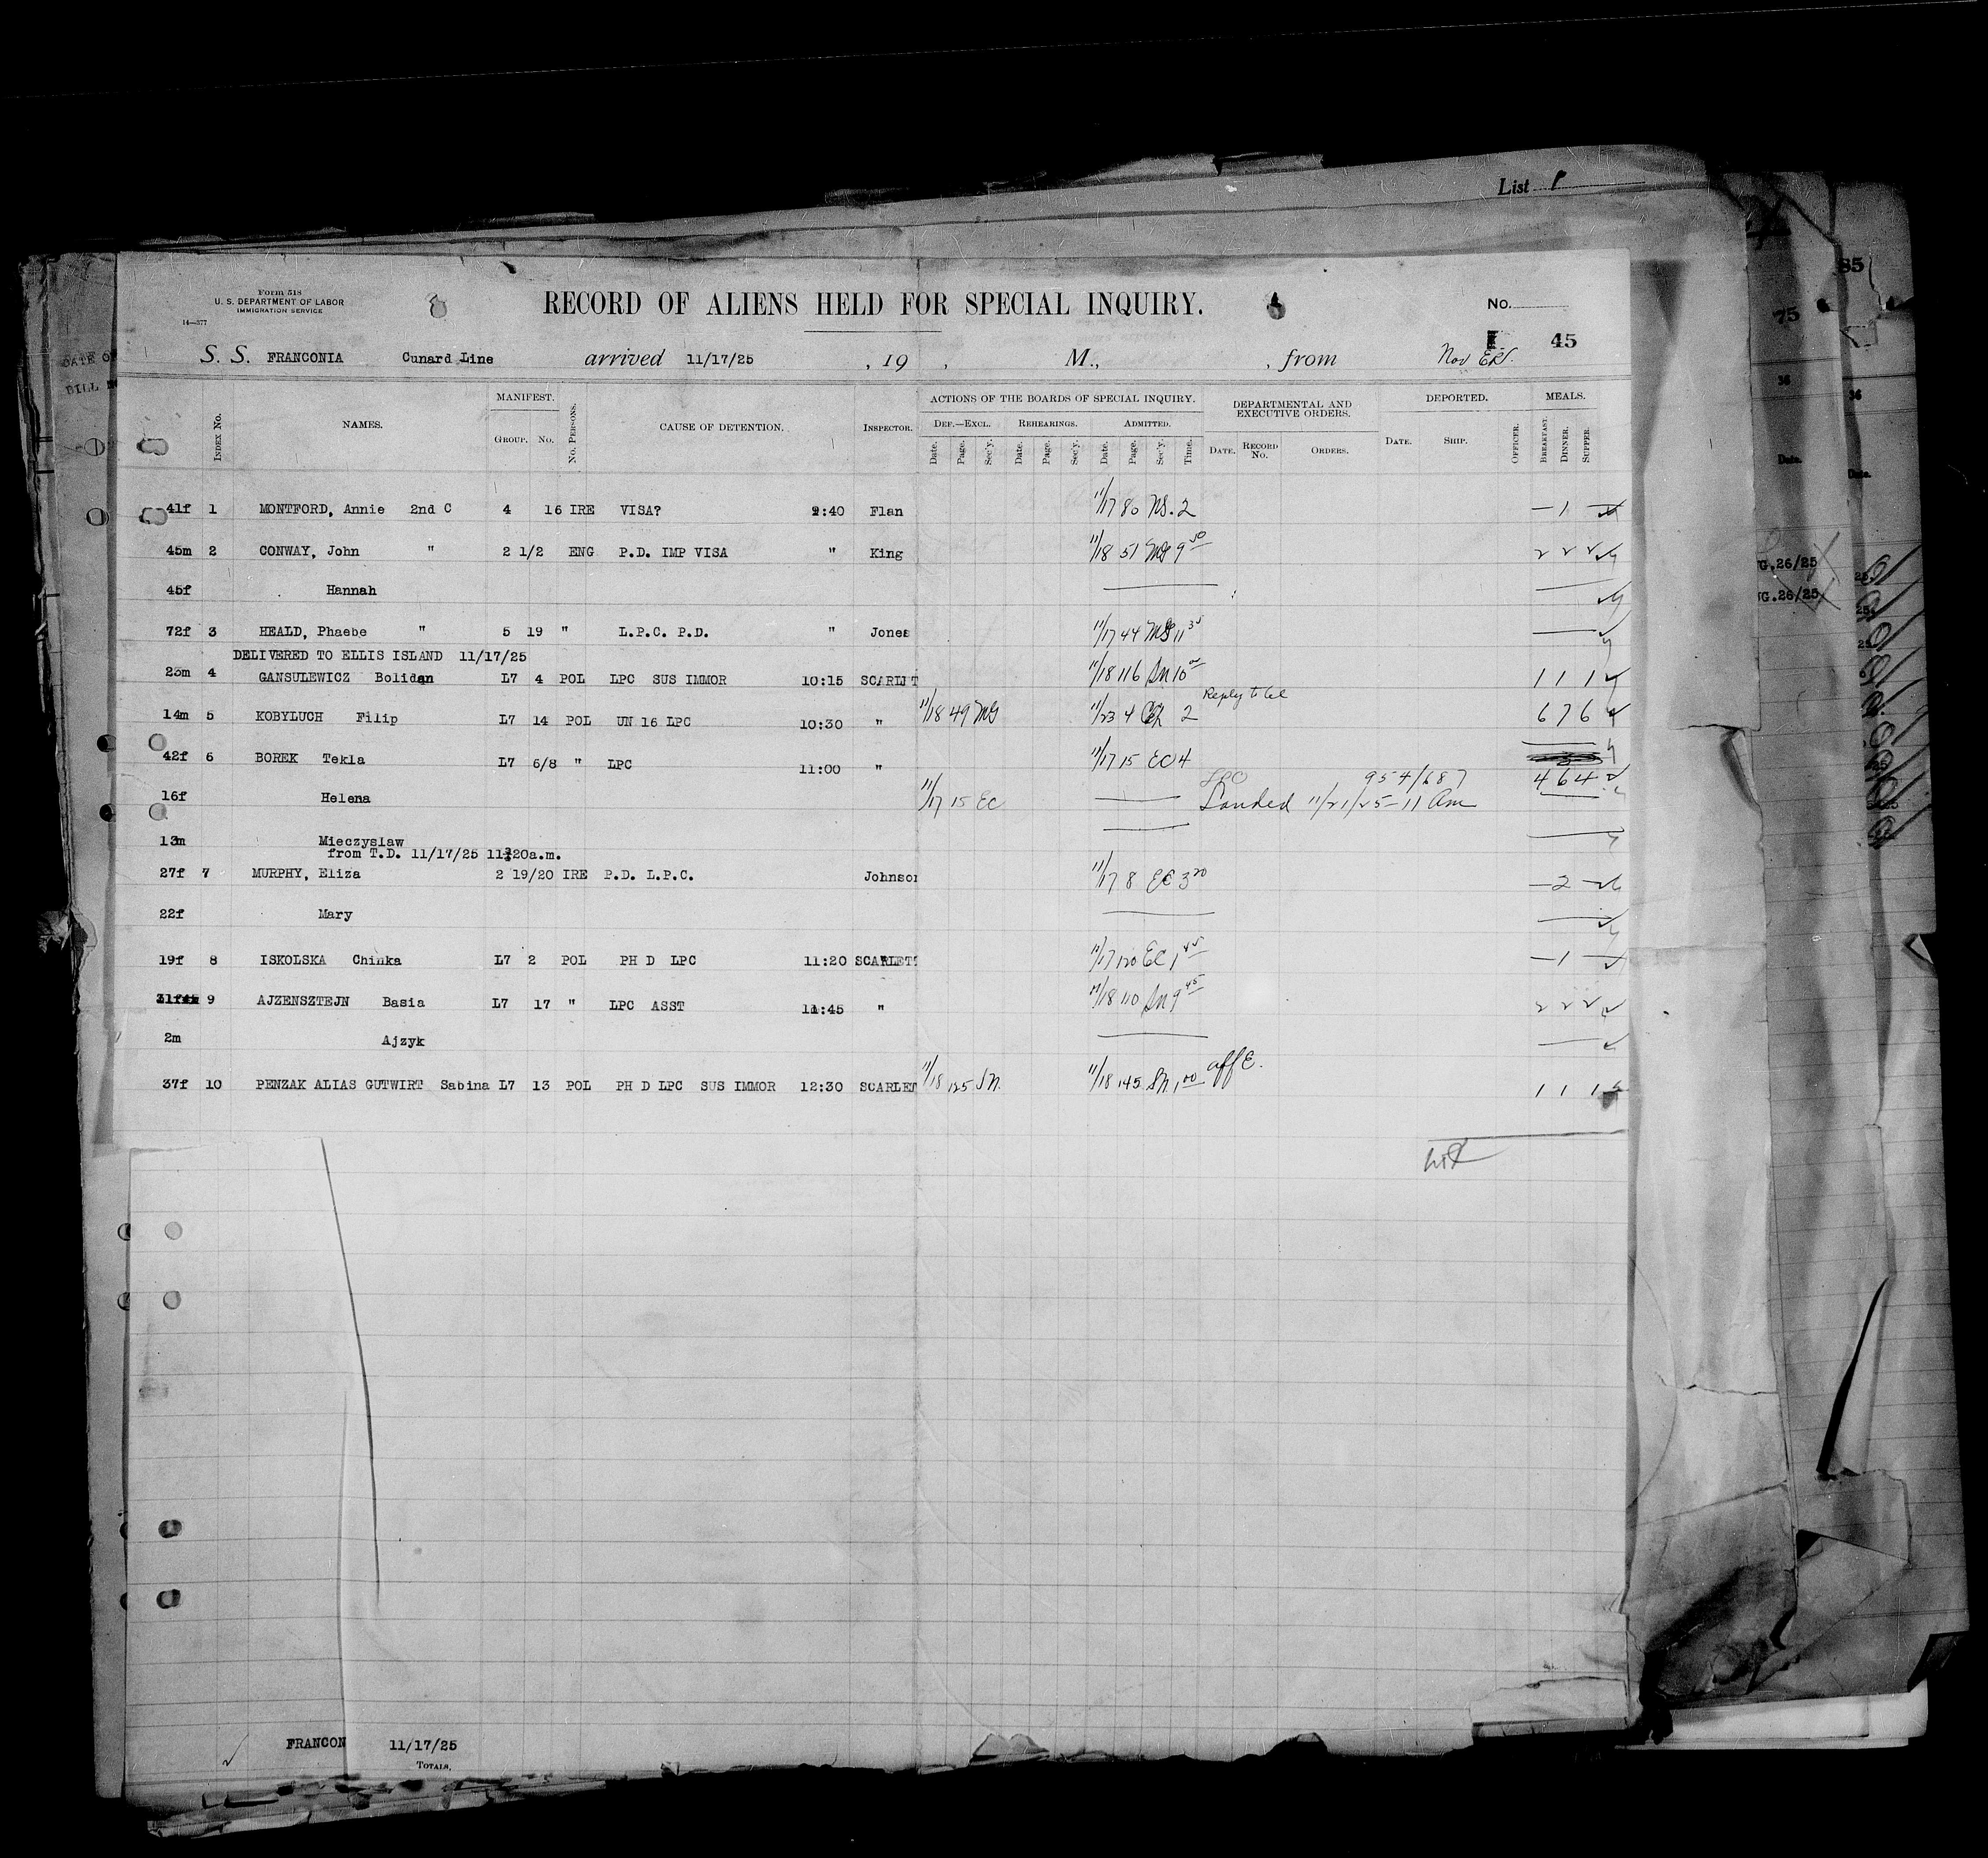 List
Form 518
U. S. DEPARTMENT OF LABOR
IMMIGRATION SERVICE
14—377
RECORD OF ALIENS HELD FOR SPECIAL INQUIRY.
No.
45
S. S. FRANCONIA Cunard Line arrived 11/17/25 , 19 , M., , from Nov
DATE OF
BILL
Index No. NAMES. MANIFEST. Group. No. No. Persons. CAUSE OF DETENTION. Inspector. ACTIONS OF THE BOARDS OF SPECIAL INQUIRY. DEPARTMENTAL AND EXECUTIVE ORDERS. DEPORTED. MEALS.
Def.—Excl. Rehearings. Admitted.
Date. Page. Sec'y. Date. Page. Sec'y. Date. Page. Sec'y. Time. Date. Record No. Orders. Date. Ship. Officer. Breakfast. Dinner. Supper.
41f 1 MONTFORD, Annie 2nd C 4 16 IRE VISA? 9:40 Flan 11/17 80 NS. 2 — 1 —
45m 2 CONWAY, John " 2 1/2 ENG P.D. IMP VISA " King 11/18 51 MG 9 30 2 2 2
45f Hannah
72f 3 HEALD, Phaebe " 5 19 " L.P.C. P.D. " Jones 11/17 44 MG 11 35
DELIVERED TO ELLIS ISLAND 11/17/25
23m 4 GANSULEWICZ Bolidan L7 4 POL LPC SUS IMMOR 10:15 SCARLET 11/18 116 SN 10 1 1 1
Reply to tel
14m 5 KOBYLUCH Filip L7 14 POL UN 16 LPC 10:30 " 11/18 49 MG 11/23 4 2 6 7 6
42f 6 BOREK Tekla L7 6/8 " LPC 11:00 " 11/17 15 EC 4
954/687 4 6 4
16f Helena 11/17 15 EC Landed 11/21/25 — 11 am
13m Mieczyslaw
from T.D. 11/17/25 11:20a.m.
27f 7 MURPHY, Eliza 2 19/20 IRE P.D. L.P.C. Johnson 11/17 8 EC 3 20 — 2 —
22f Mary
19f 8 ISKOLSKA Chinka L7 2 POL PH D LPC 11:20 SCARLETT 11/17 120 EC 1 45 — 1 —
9 AJZENSZTEJN Basia L7 17 " LPC ASST 11:45 " 11/18 110 SN 9 45 2 2 2
2m Ajzyk
37f 10 PENZAK ALIAS GUTWIRT Sabina L7 13 POL PH D LPC SUS IMMOR 12:30 SCARLET 11/18 125 SN. 11/18 145 SN 1 00 aff E. 1 1 1
FRANCON 11/17/25
Totals.
75
36
Date.
G.26/25
G.26/25
85
36
Date.
25
25
25
25